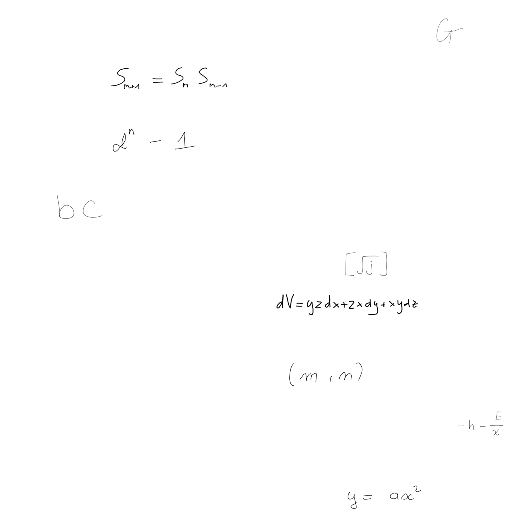 G
S_{n+1} = S_n S_{n-1}
2^n - 1
bc
[√J]
dV=yzdx+zxdy+xydz
(m, n)
-h-\frac{E}{x}
y = ax^2